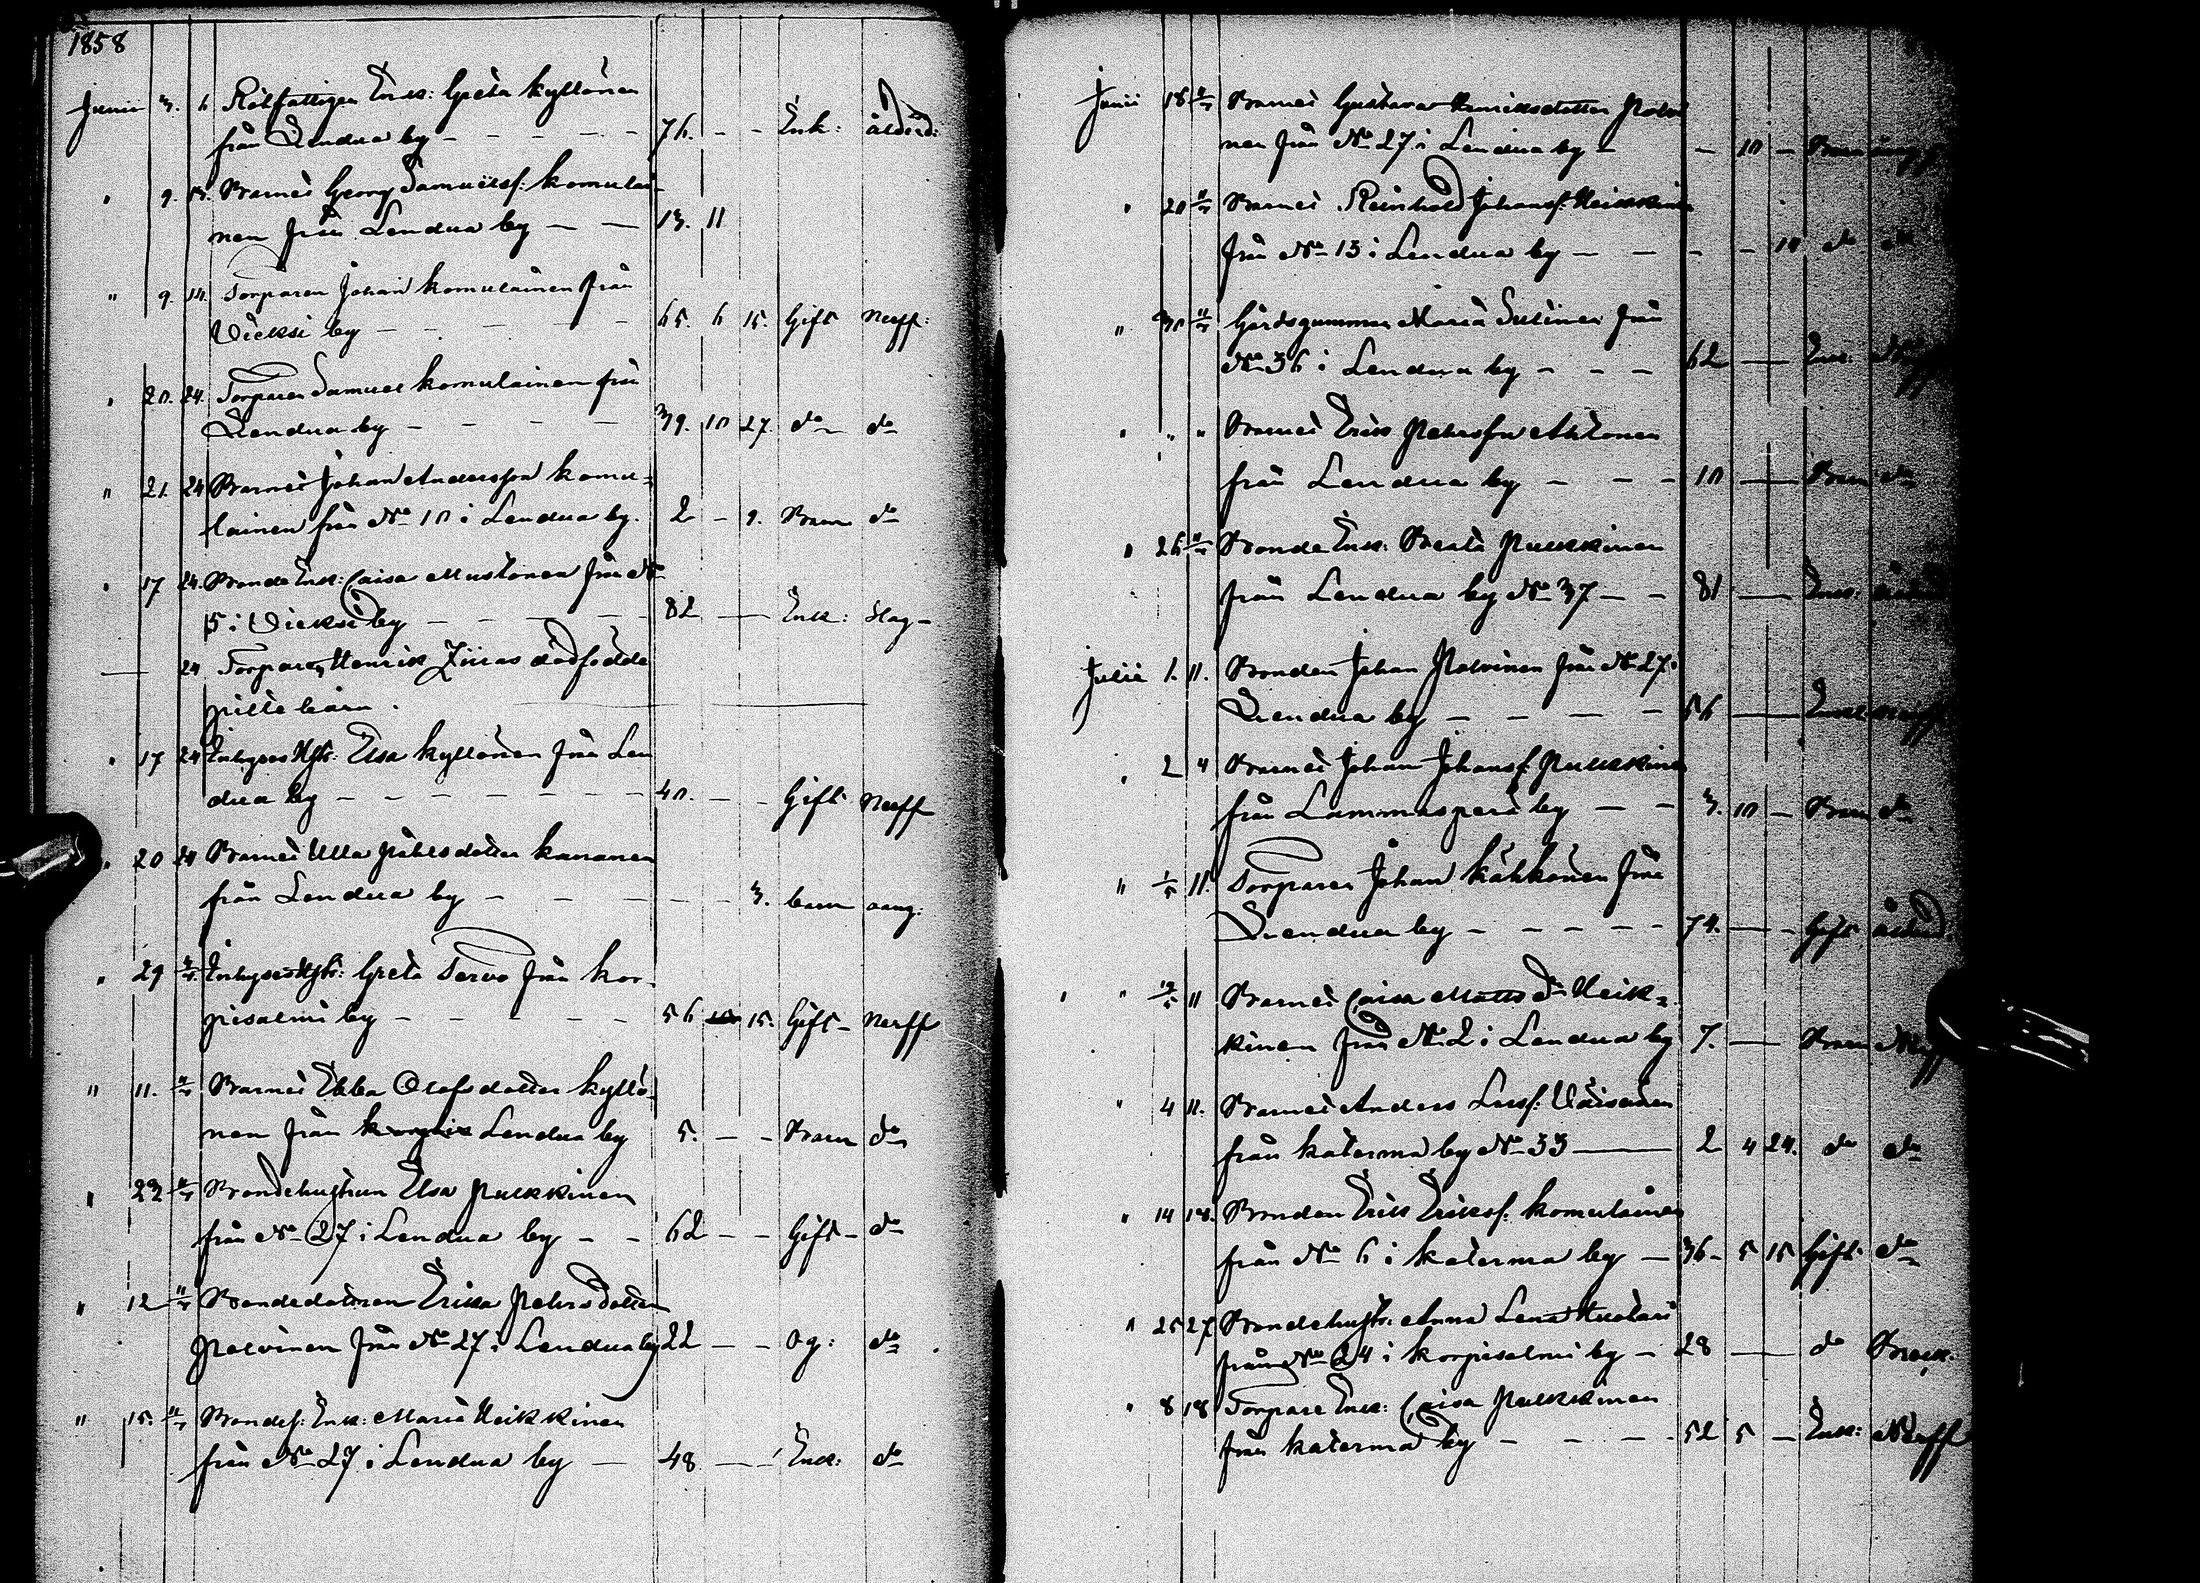 1858
Junii 3. 6 Rotfattigen Enk: Greta Kyllönen
från Lendua by - - - - - 76. - - Enk: ålderd:
" 9. 13. Barnet Georg Samuelsf: Komulai-
nen från Lendua by - - 13. 11
" 9. 14. Torparen Johan Komulainen från
Vieksi by - - - - 65. 6 15. Gift Nerff:
" 20. 24. Torparen Samuel Komulainen från
Lendua by - - - - 39. 10 27. do do
" 21. 24 Barnet Johan Andersson Komu-
lainen från No 10 i Lendua by. 2 - 9. Barn do
" 17 24. Bonde Enk: Caisa Mustonen från No
5 i Vieksi by - - - - 82 - Enk: Slag-
- 24 Torparen Henrik Ziiras dödfödde
pille barn.
" 17 24 Inhyses Hstr: Elsa Kyllönen från Len
dua by - - - - - - 40. - - Gift Nerff
" 20 24 Barnet Ulla Pehrsdotter Kananen
från Lendua by - - - - - 3. barn aang:
" 29 Inhyses Hstr: Greta Tervo från Kor-
pisalmi by - - - - 56 15. Gift - Nerff
" 11. 11/7 Barnet Ebba Olofsdotter Kyllö-
nen från Lendua by 5. - - Barn do
" 23 11/7 Bondehustrun Elsa Pulkkinen
från No 27 i Lendua by - - 62 - - Gift - do
" 12 11/7 Bondedottren Erika Pehrsdotter
Polvinen från No 27 i Lendua by 22 - - Og: do
" 15. 11/7 Bondef: Enk: Maria Heikkinen
från No 27 i Lendua by - 48 - - Enk: do
Junii 18 11/7 Barnet Gustava Henriksdotter Polvi
nen från No 27 i Lendua by - - 10 - Barn
" 20 11/7 Barnet Reinhold Johansf: Heikkinen
från No 13 i Lendua by - - - - 10 do do
" 30 11/7 Gårdsgumman Maria Sutinen från
No 36 i Lendua by - - - 62 - Enk:
" " " Barnet Erik Pehrsson Ahtonen
från Lendua by - - - 10 - Barn do
" 26 11/7 Bonde Enk: Beata Pulkkinen
från Lendua by No 37 - - 81 - Enk:
Julii 1. 11. Bonden Johan Polvinen från No 27 i
Lendua by - - - - 56 -
" 2 4 Barnet Johan Johansf: Pulkkinen
från Lammasperä by - - 3. 10 - Barn do
" 11. Torparen Johan Kähkönen från
Lendua by - - - - - 74. - - Gift ålderd.
" " 11 Barnet Caisa Matts Dr Heik-
kinen från No 2 i Lendua by 7. - Barn
" 4 11. Barnet Anders Larsf: Väisänen
från Katerma by No 33 - 2 4 24. do do
" 14 18. Bonden Erik Eriksf: Komulainen
från No 6 i Katerma by - 36 - 5 15 Gift do
" 25 27 Bondehustr: Anna Lena Huotari
från No 24 i Korpisalmi by - 28 - do
" 8 18 Torpare Enk: Caisa Pulkkinen
från Katerma by - - - - 52 5 - Enk: Nerff